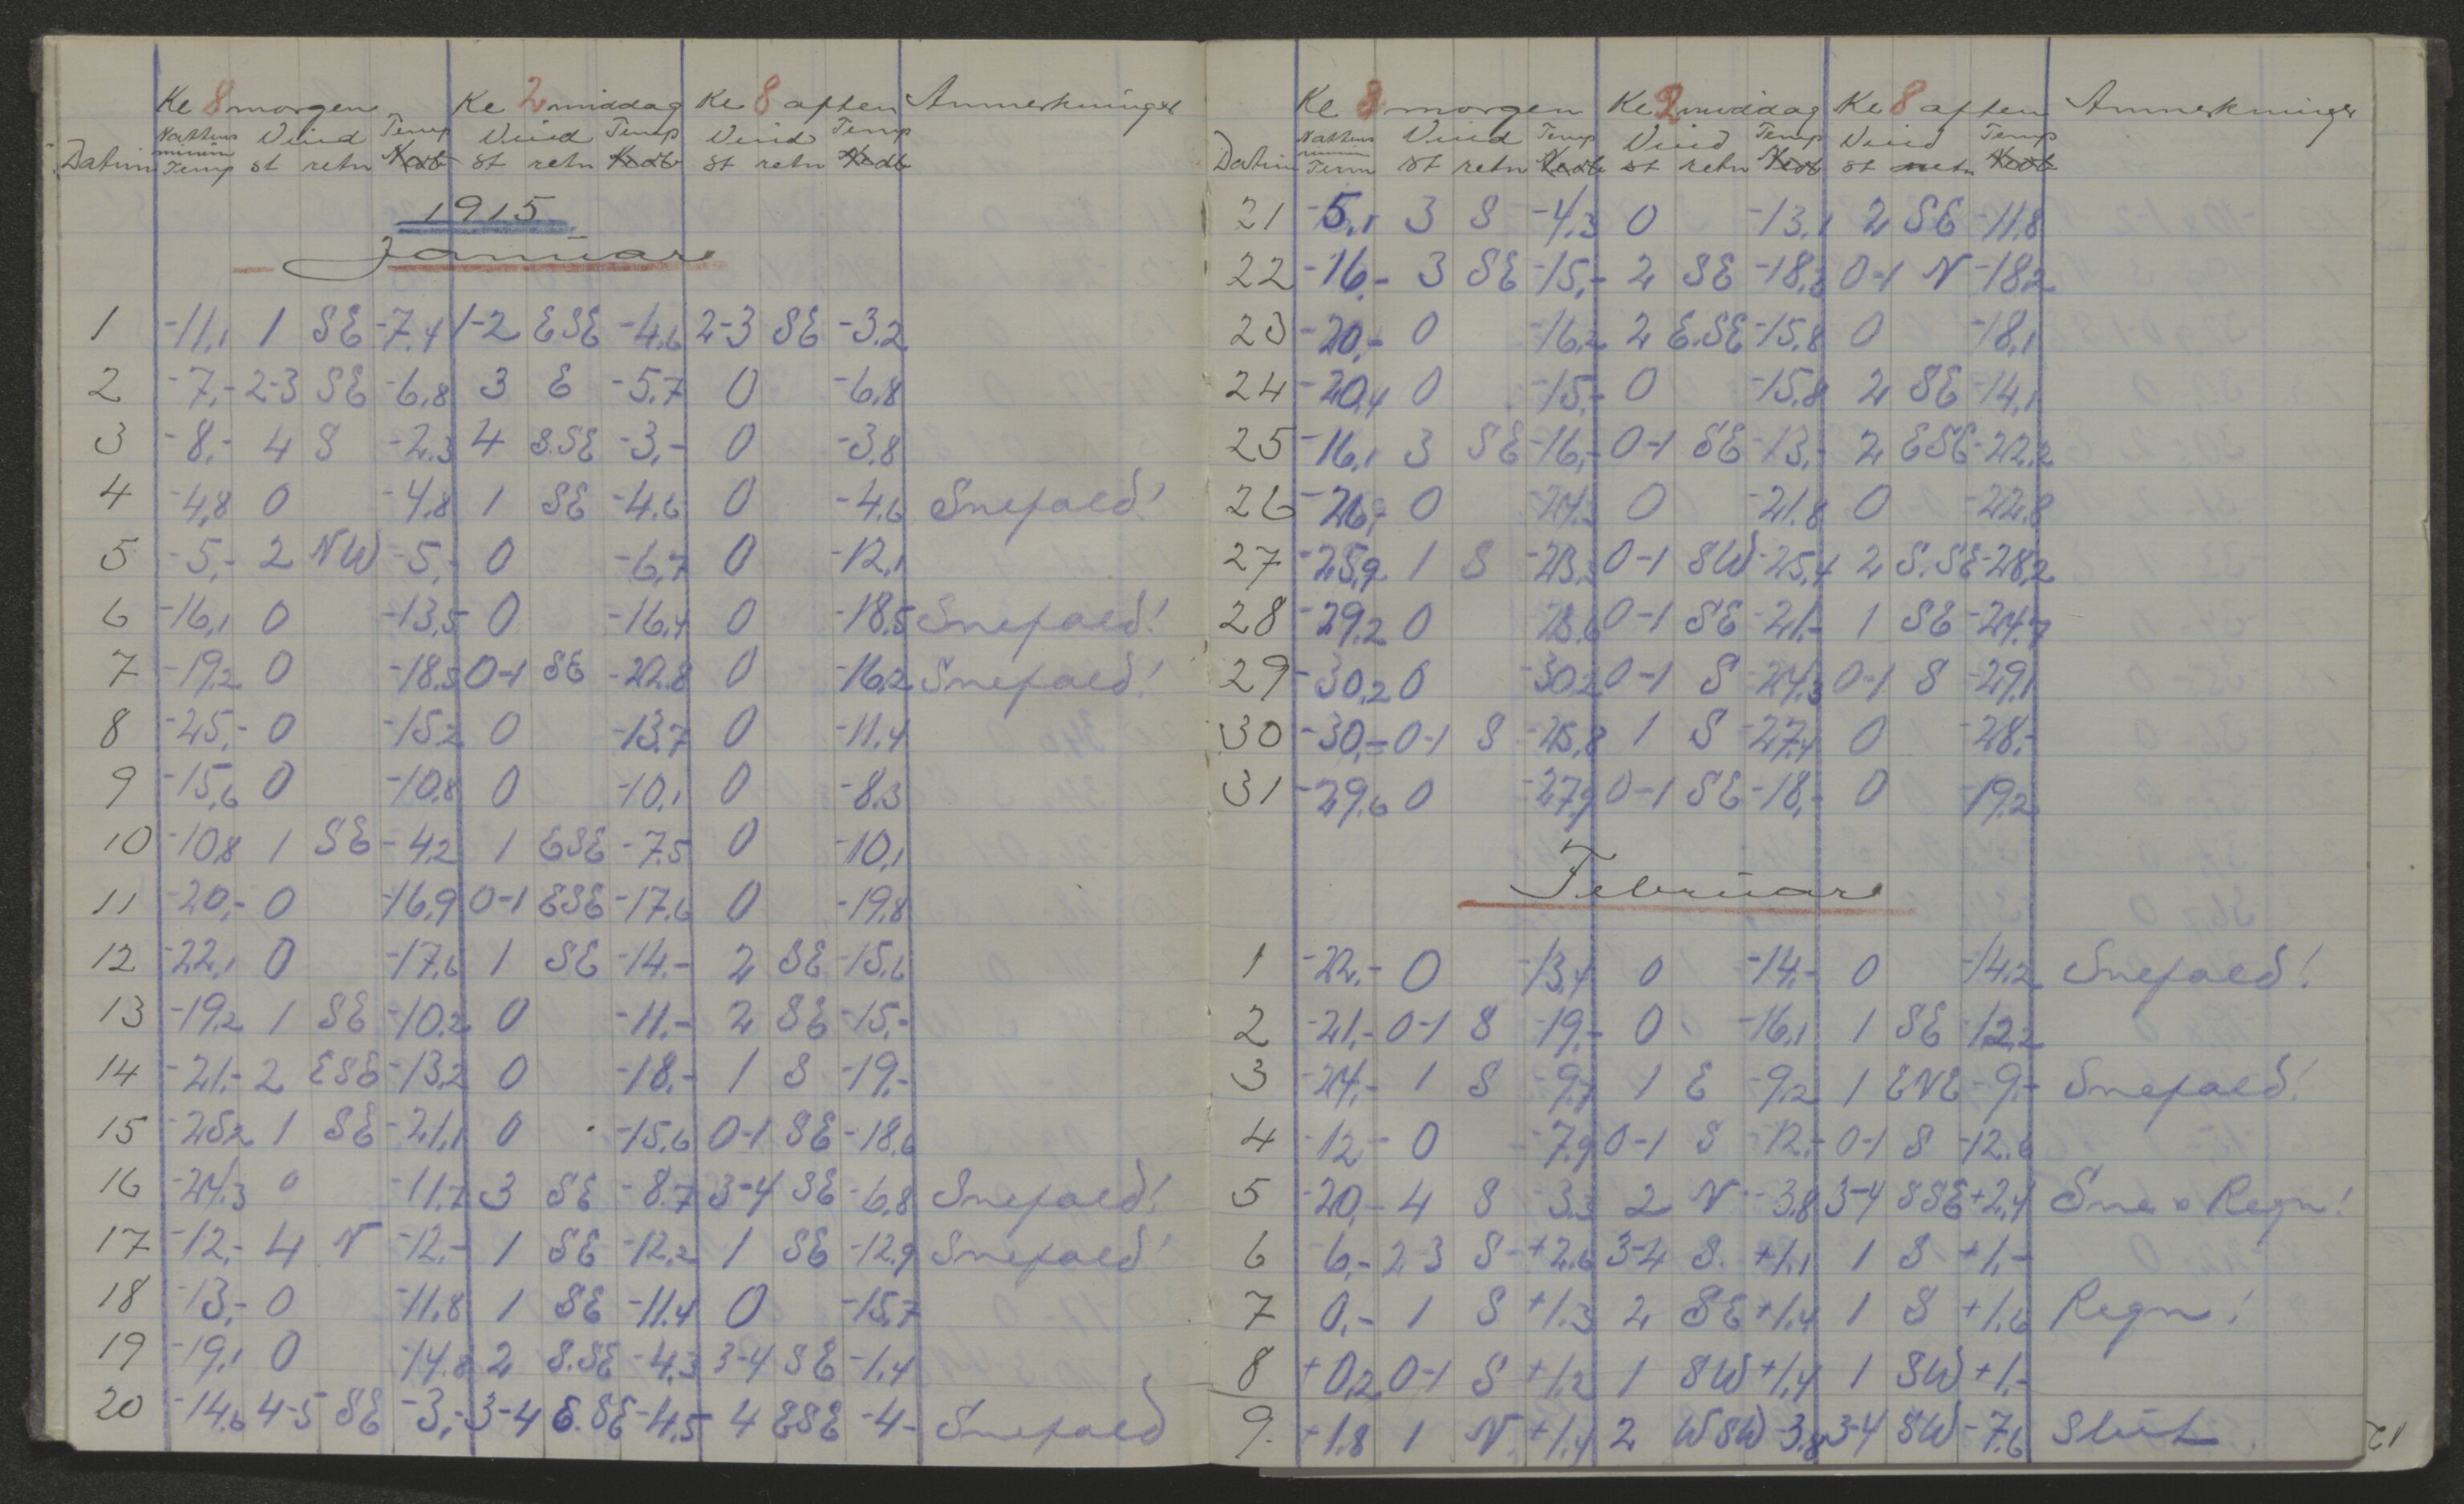 Kl 8 morgen Kl 2 middag Kl 8 aften Anmerkninger
Nattens Vind Temp Vind Temp Vind Temp
minim
Datum Temp st retn Nedb st retn Nedb st retn Nedb
1915
Januar
1 -11,1 1 SE -7,4 1-2 ESE -4,6 2-3 SE -3,2
2 -7,- 2-3 SE -6,8 3 E -5,7 0 -6,8
3 -8,- 4 S -2,3 4 S.SE -3,- 0 -3,8
4 -4,8 0 -4,8 1 SE -4,6 0 -4,6 Snefald!
5 -5,- 2 NW -5,- 0 -6,7 0 -12,1
6 -16,1 0 -13,5 0 -16,4 0 -18,5 Snefald!
7 -19,2 0 -18,5 0-1 SE -22,8 0 -16,2 Snefald!
8 -25,- 0 -15,2 0 -13,7 0 -11,4
9 -15,6 0 -10,8 0 -10,1 0 -8,3
10 -10,8 1 SE -4,2 1 ESE -7,5 0 -10,1
11 -20,- 0 -16,9 0-1 ESE -17,6 0 -19,8
12 -22,1 0 -17,6 1 SE -14,- 2 SE -15,6
13 -19,2 1 SE -10,2 0 -11,- 2 SE -15,-
14 -21,- 2 ESE -13,2 0 -18,- 1 S -19,-
15 -25,2 1 SE -21,1 0 -15,6 0-1 SE -18,6
16 -24,3 0 -11,7 3 SE -8,7 3-4 SE -6,8 Snefald!
17 -12,- 4 N -12,- 1 SE -12,2 1 SE -12,9 Snefald!
18 -13,- 0 -11,8 1 SE -11,4 0 -15,7
19 -19,1 0 -14,8 2 S.SE -4,3 3-4 SE -1,4
20 -14,6 4-5 SE -3,- 3-4 E.SE -4,5 4 ESE -4- Snefald
Kl 8 morgen Kl 2 middag Kl 8 aften Anmerkninger
Nattens Vind Temp Vind Temp Vind Temp
minim
Datum Tem st retn Nedb st retn Nedb st retn Nedb
21 -5,1 3 S -4,3 0 -13,1 2 SE -11,8
22 -16,- 3 SE -15,- 2 SE -18,3 0-1 N -18,2
23 -20,- 0 -16,2 2 E.SE -15,8 0 -18,1
24 -20,4 0 -15,- 0 -15,8 2 SE -14,1
25 -16,1 3 SE -16,- 0-1 SE -13,- 2 ESE -22,2
26 -26,- 0 -24,3 0 -21,8 0 -22,8
27 -25,9 1 S -23,3 0-1 SW -25,4 2 S.SE -28,2
28 -29,2 0 -28,6 0-1 SE -21,- 1 SE -24,7
29 -30,2 0 -30,2 0-1 S -24,3 0-1 S -29,1
30 -30,- 0-1 S -25,8 1 S -27,4 0 -28,-
31 -29,6 0 -27,9 0-1 SE -18,- 0 -19,2
Februar
1 -22,- 0 -13,4 0 -14,- 0 -14,2 Snefald!
2 -21,- 0-1 S -19,- 0 -16,1 1 SE -12,2
3 -24,- 1 S -9,7 1 E -9,2 1 ENE -9,- Snefald!
4 -12- 0 -7,9 0-1 S -12,- 0-1 S -12,6
5 -20,- 4 S -3,3 2 N -3,8 3-4 SSE +2,4 Sne & Regn!
6 -6,- 2-3 S +2,6 3-4 S. +1,1 1 S +1,-
7 0,- 1 S +1,3 2 SE +1,4 1 S +1,6 Regn!
8 +0,2 0-1 S +1,2 1 SW +1,4 1 SW +1,-
9. +1,8 1 N. +1,4 2 WSW -3,8 3-4 SW -7,6 Slut.
12